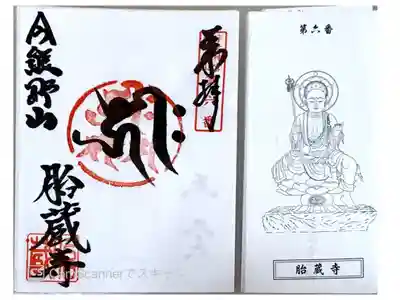 奉拝
今熊野山
胎蔵寺
CamScannerでスキ
第六番
胎蔵寺